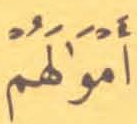 أَمْوَٰلَهُمْ